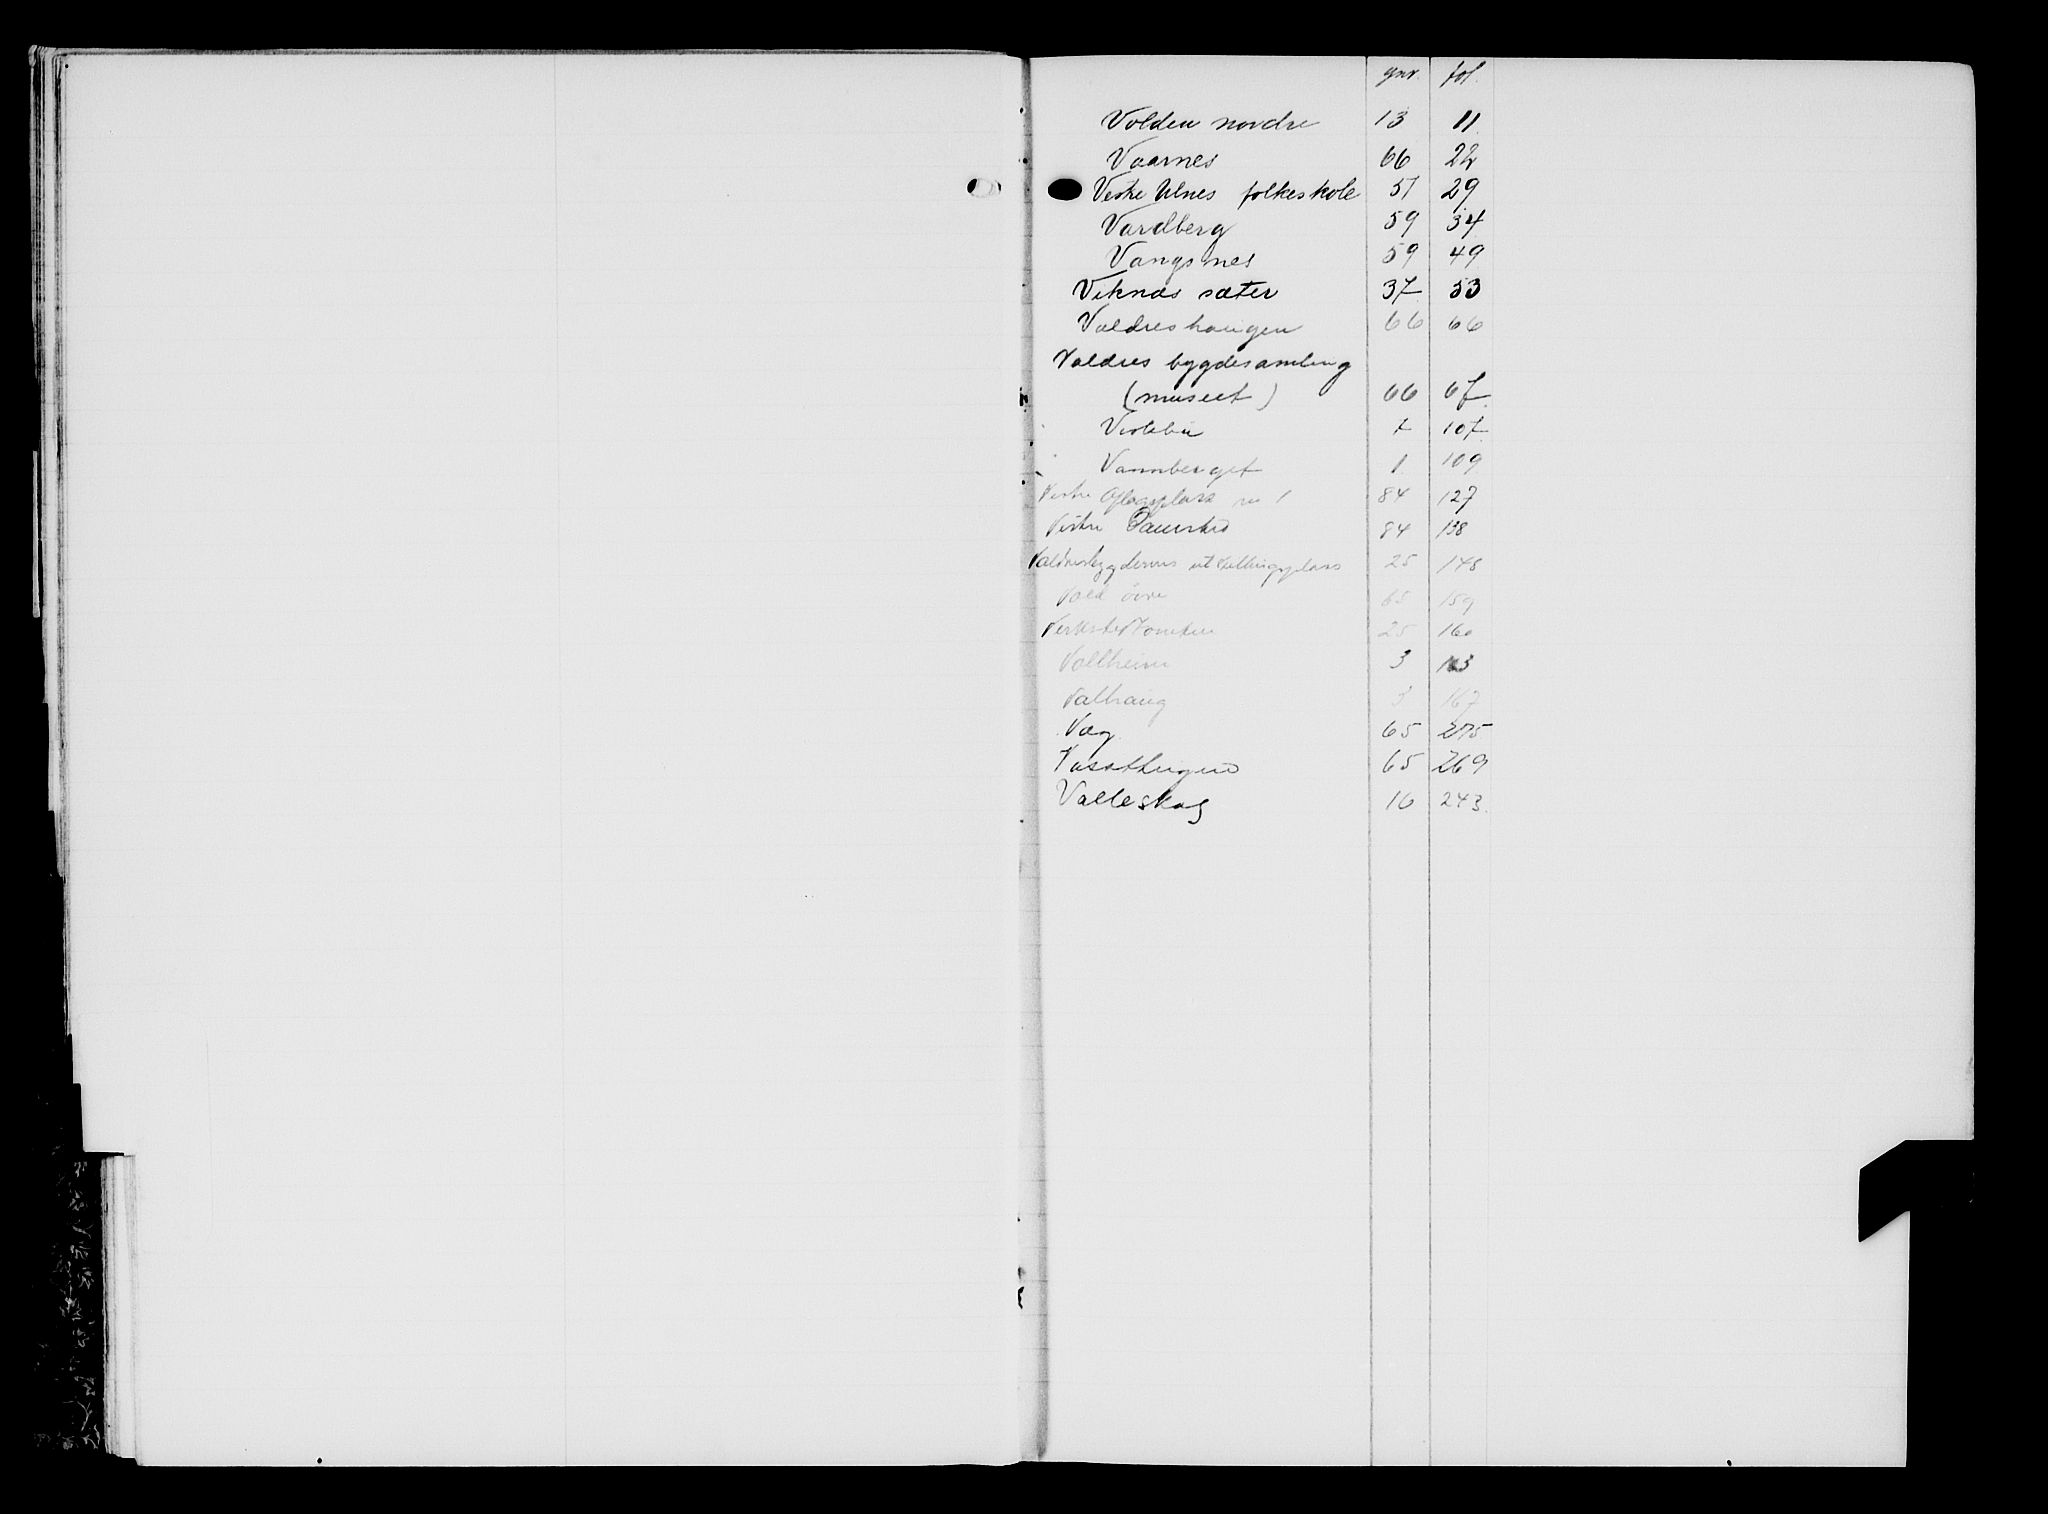 gnr. fol.
Volden nordre 13 11
Vaarnes 66 22
Vestre Ulnes folkeskole 51 29
Vardberg 59 34
Vangsnes 59 49
Viknes sæter 37 53
Valdreshaugen 66 66
Valdres bygdesamling
(museet) 66 67
7 107
Vannberget 1 109
Vestre Oplagsplass no 1 84 127
Vestre 84 138
Valdresbygdernes utstillingsplass 25 148
Vold övre 65 159
Verkstedtomten 25 160
Vallheim 3 163
Valhaug 3 167
Væg 65 275
65 269
Valleskog 16 243